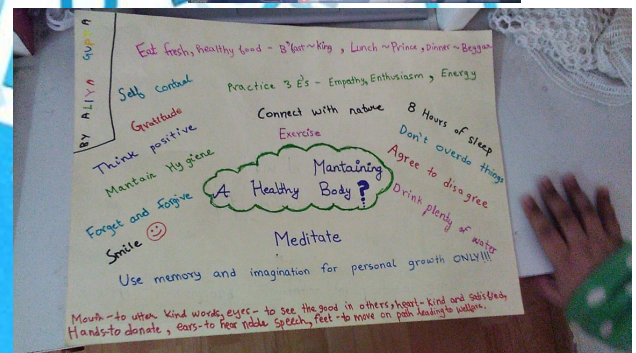 BY ALIYA GUPTA
Eat fresh, healthy food - B'fast ~ King , Lunch ~ Prince , Dinner ~ Beggar
Self control
Practice 3 E's - Empathy, Enthusiasm , Energy
Gratitude
Connect with nature
8 Hours of sleep
Think positive
Exercise
Don't overdo things
Mantain Hygiene
Agree to disagree
Mantaining
A Healthy Body ?
Drink plenty of water
Forget and forgive
Smile
Meditate
Use memory and imagination for personal growth ONLY!!!
Mouth - to utter kind words, eyes - to see the good in others, heart - kind and satisfied,
Hands - to donate , ears - to hear noble speech, feet - to move on path leading to welfare.